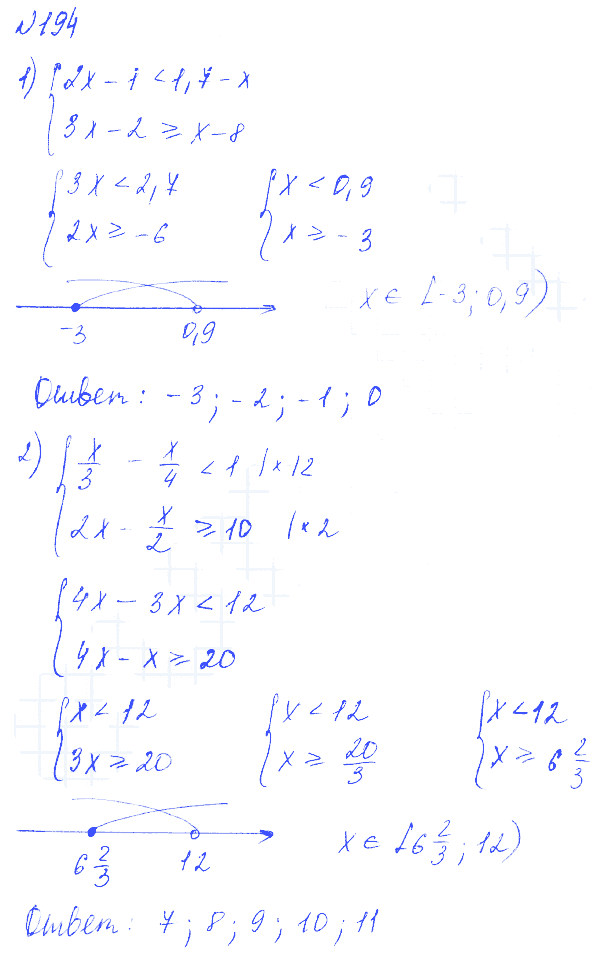 №194
1) { 2x - 1 < 1,7 - x
3x - 2 ≥ x - 8
{ 3x < 2,7 { x < 0,9
2x ≥ -6 x ≥ -3
x ∈ [-3; 0,9)
-3 0,9
Ответ: -3; -2; -1; 0
2) { x/3 - x/4 < 1 | × 12
2x - x/2 ≥ 10 | × 2
{ 4x - 3x < 12
4x - x ≥ 20
{ x < 12 { x < 12 { x < 12
3x ≥ 20 x ≥ 20/3 x ≥ 6 2/3
x ∈ [6 2/3; 12)
6 2/3 12
Ответ: 7; 8; 9; 10; 11